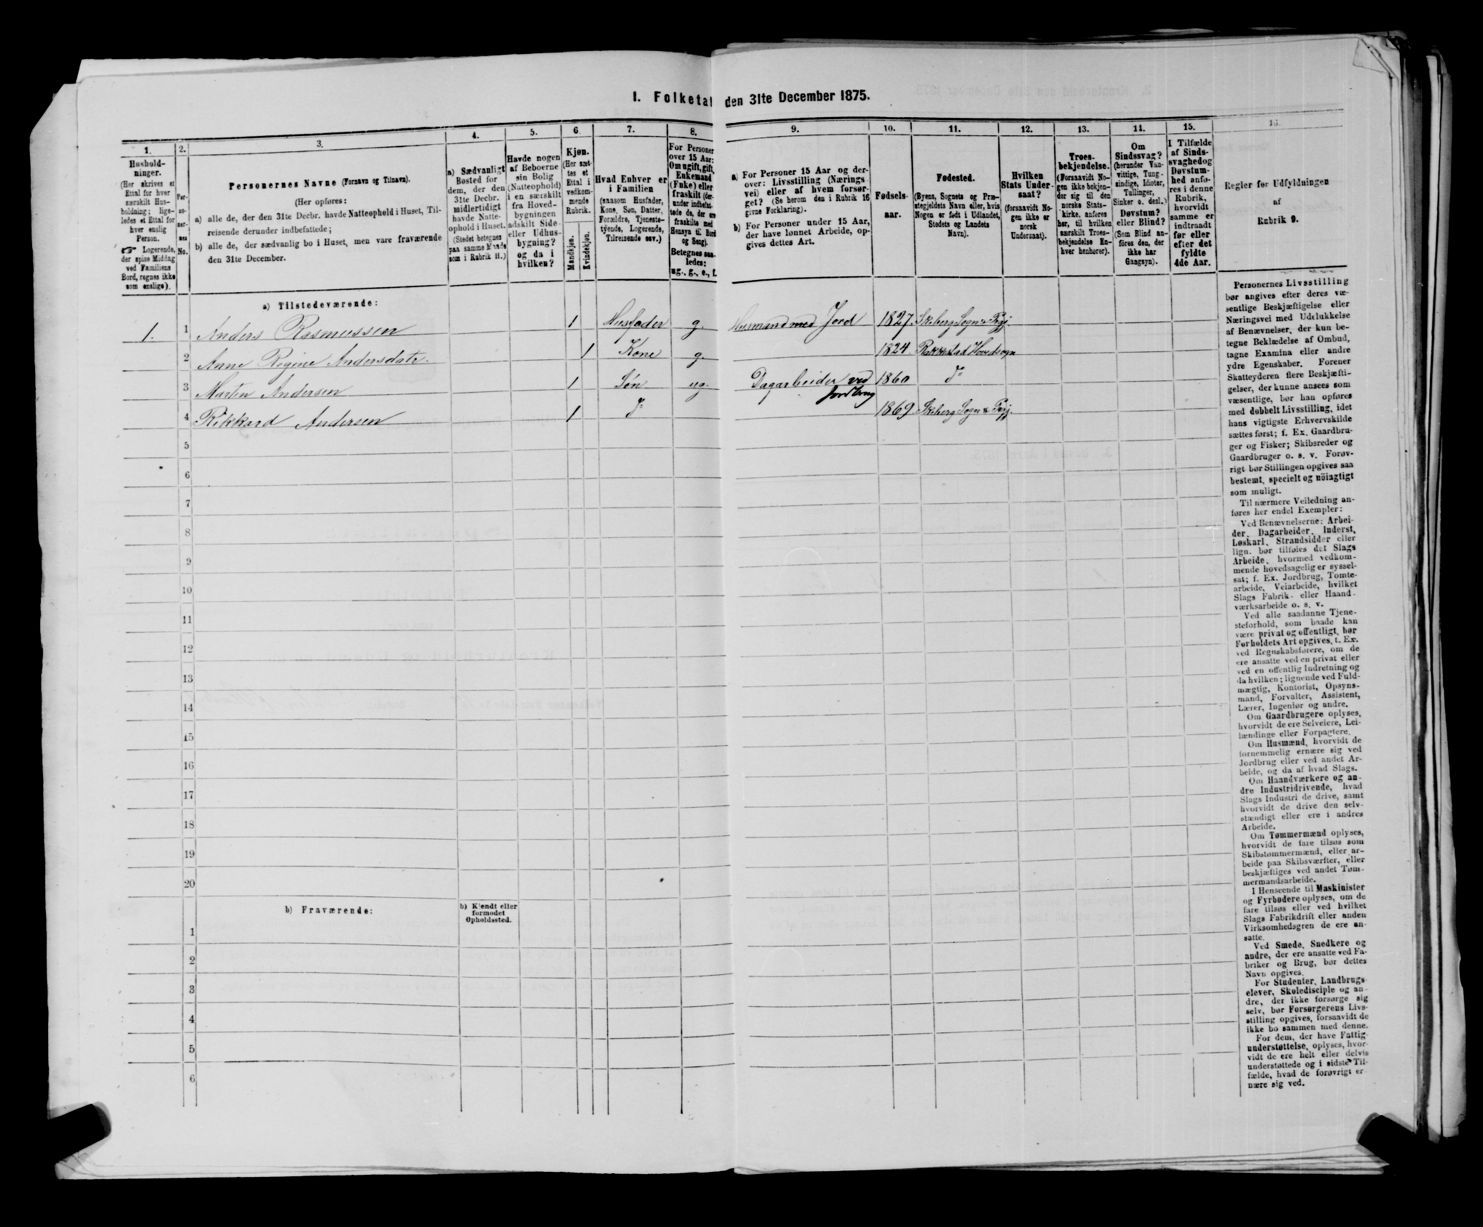 I. Folketal den 31te December 1875.
1.
Husholdninger.
(Her skrives et Ettal for hver særskilt Husholdning; ligeledes et Ettal for hver enslig Person.
☞ Logerende, der spise Middag ved Familiens Bord, regnes ikke som enslige).
2.
Personernes No.
3.
Personernes Navne (Fornavn og Tilnavn).
(Her opføres:
a) alle de, der den 31te Decbr. havde Natteophold i Huset, Tilreisende derunder indbefattede;
b) alle de, der sædvanlig bo i Huset, men vare fraværende den 31te December.
4.
a) Sædvanligt Bosted for dem, der den 31te Decbr. midlertidigt havde Natteophold i Huset.
(Stedet betegnes paa samme Maade som i Rubrik 11.)
5.
Havde nogen af Beboerne sin Bolig (Natteophold) i en særskilt fra Hovedbygningen adskilt Side- eller Udhusbygning? og da i hvilken?
6
Kjøn.
(Her sættes et Ettal i vedkommende Rubrik.
Mandkjøn.
Kvindekjøn.
7.
Hvad Enhver er i Familien
(saasom Husfader, Kone, Søn, Datter, Forældre, Tjenestetyende, Logerende, Tilreisende osv.)
8.
For Personer over 15 Aar: Om ugift, gift, Enkemand (Enke) eller fraskilt
Betegnes saaledes: ug., g., e., f.
9.
a) For Personer 15 Aar og derover: Livsstilling (Næringsvei) eller af hvem forsørget? (Se herom den i Rubrik 16 givne Forklaring).
b) For Personer under 15 Aar, der have lønnet Arbeide, opgives dettes Art.
10.
Fødselsaar.
11.
Fødested.
(Byens, Sognets og Præstegjeldets Navn eller, hvis Nogen er født i Udlandet, Stedets og Landets Navn).
12.
Hvilken Stats Undersaat?
(forsaavidt Nogen ikke er norsk Undersaat).
13.
Troesbekjendelse.
(Forsaavidt Nogen ikke bekjender sig til den norske Statskirke, anføres her, til hvilken særskilt Troesbekjendelse Enhver henhører).
14.
Om Sindssvag?
(herunder Vanvittige, Tungsindige, Idioter, Tullinger, Sinker o. desl.)
Døvstum? eller Blind?
(Som Blind anføres den, der ikke har Gangsyn).
15.
I Tilfælde af Sindssvaghed og Døvstumhed anføres i denne Rubrik, hvorvidt samme er indtraadt før eller efter det fyldte 4de Aar.
16.
Regler før Udfyldningen
af
Rubrik 9.
a) Tilstedeværende:
1. 1 Anders Rasmussen 1 Husfader g. Husmand med Jord 1827 Skiberg Sogn & Prgj.
2 Anne Regine Andersdatr. 1 Kone g. 1824 Rakkestad Hovedsogn
3 Martin Andersen 1 Søn ug. Dagarbeider ved Jordbrug 1860 do
4 Rikkard Andersen 1 do 1869 Skiberg Sogn & Prgj.
5
6
7
8
9
10
11
12
13
14
15
16
17
18
19
20
b) Fraværende:
b) Kjendt eller formodet Opholdssted.
1
2
3
4
5
6
Personernes Livsstilling
bør angives efter deres væ-
sentlige Beskjæftigelse eller
Næringsvei med Udelukkelse
af Benævnelser, der kun be-
tegne Beklædelse af Ombud,
tagne Examina eller andre
ydre Egenskaber. Forener
Skatteyderen flere Beskjæfti-
gelser, der kunne ansees som
væsentlige, bør han opføres
med dobbelt Livsstilling, idet
hans vigtigste Erhvervskilde
sættes først; f. Ex. Gaardbru-
ger og Fisker; Skibsreder og
Gaardbruger o. s. v. Forøv-
rigt bør Stillingen opgives saa
bestemt, specielt og nøiagtigt
som muligt.
Til nærmere Veiledning an-
føres her endel Exempler:
Ved Benævnelserne: Arbei-
der, Dagarbeider, Inderst,
Løskarl, Strandsidder eller
lign. bør tilføies det Slags
Arbeide, hvormed vedkom-
mende hovedsagelig er syssel-
sat; f. Ex. Jordbrug, Tomte-
arbeide, Veiarbeide, hvilket
Slags Fabrik- eller Haand-
værksarbeide o. s. v.
Ved alle saadanne Tjene-
steforhold, som baade kan
være privat og offentligt, bør
Forholdets Art opgives, f. Ex.
ved Regnskabsførere, om de
ere ansatte ved en privat eller
ved en offentlig Indretning og
da hvilken; lignende ved Fuld-
mægtig, Kontorist, Opsyns-
mand, Forvalter, Assistent,
Lærer, Ingeniør og andre.
Om Gaardbrugere oplyses,
hvorvidt de ere Selveiere, Lei-
lændinge eller Forpagtere.
Om Husmænd, hvorvidt de
fornemmelig ernære sig ved
Jordbrug eller ved andet Ar-
beide, og da af hvad Slags.
Om Haandværkere og an-
dre Industridrivende, hvad
Slags Industri de drive, samt
hvorvidt de drive den selv-
stændigt eller ere i andres
Arbeide.
Om Tømmermænd oplyses,
hvorvidt de fare tilsøs som
Skibstømmermænd, eller ar-
beide paa Skibsværfter, eller
beskjæftiges ved andet Tøm-
mermandsarbeide.
I Henseende til Maskinister
og Fyrbødere oplyses, om de
fare tilsøs eller ved hvilket
Slags Fabrikdrift eller anden
Virksomhedsgren de ere an-
satte.
Ved Smede, Snedkere og
andre, der ere ansatte ved Fa-
briker og Brug, bør dettes
Navn opgives.
For Studenter, Landbrugs-
elever, Skoledisciple og an-
dre, der ikke forsørge sig
selv, bør Forsørgerens Livs-
stilling opgives, forsaavidt de
ikke bo sammen med denne.
For dem, der have Fattig-
understøttelse, oplyses, hvor-
vidt de ere helt eller delvis
understøttede og i sidste Til-
fælde, hvad de forøvrigt er-
nære sig ved.